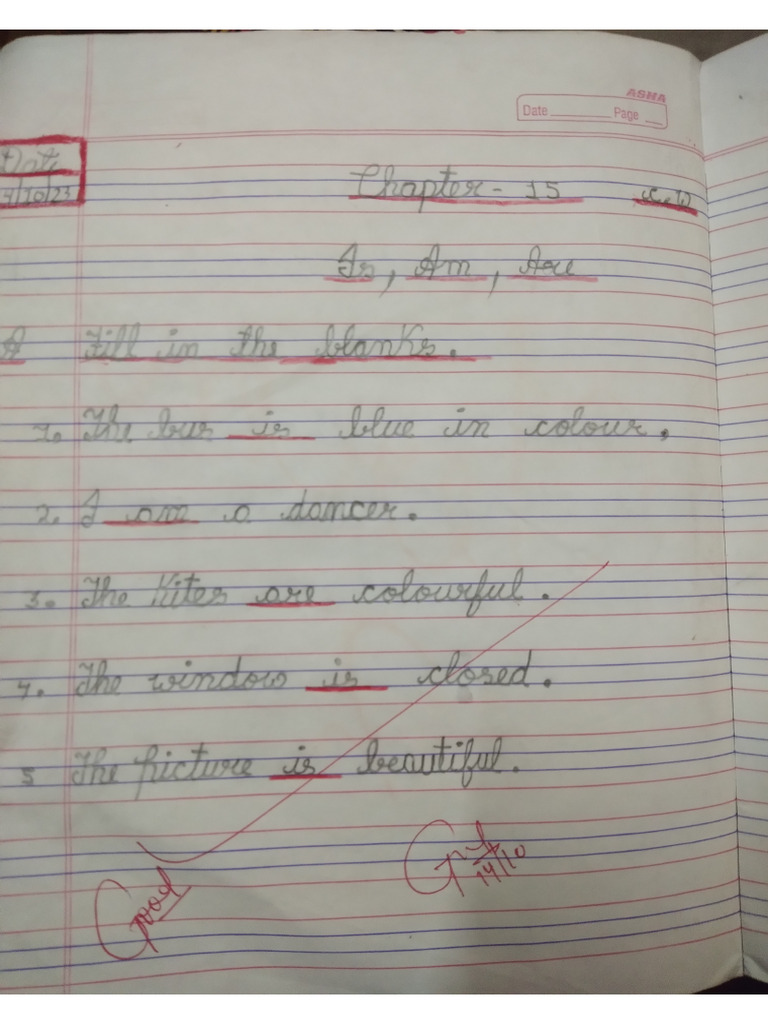 ASHA
Date Page
Date
4/10/23
Chapter - 15 C.W
Is, Am, Are
A Fill in the blanks.
1. The bus is blue in colour.
2. I am a dancer.
3. The Kites are colourful.
4. The window is closed.
5 The picture is beautiful.
Good
14/10